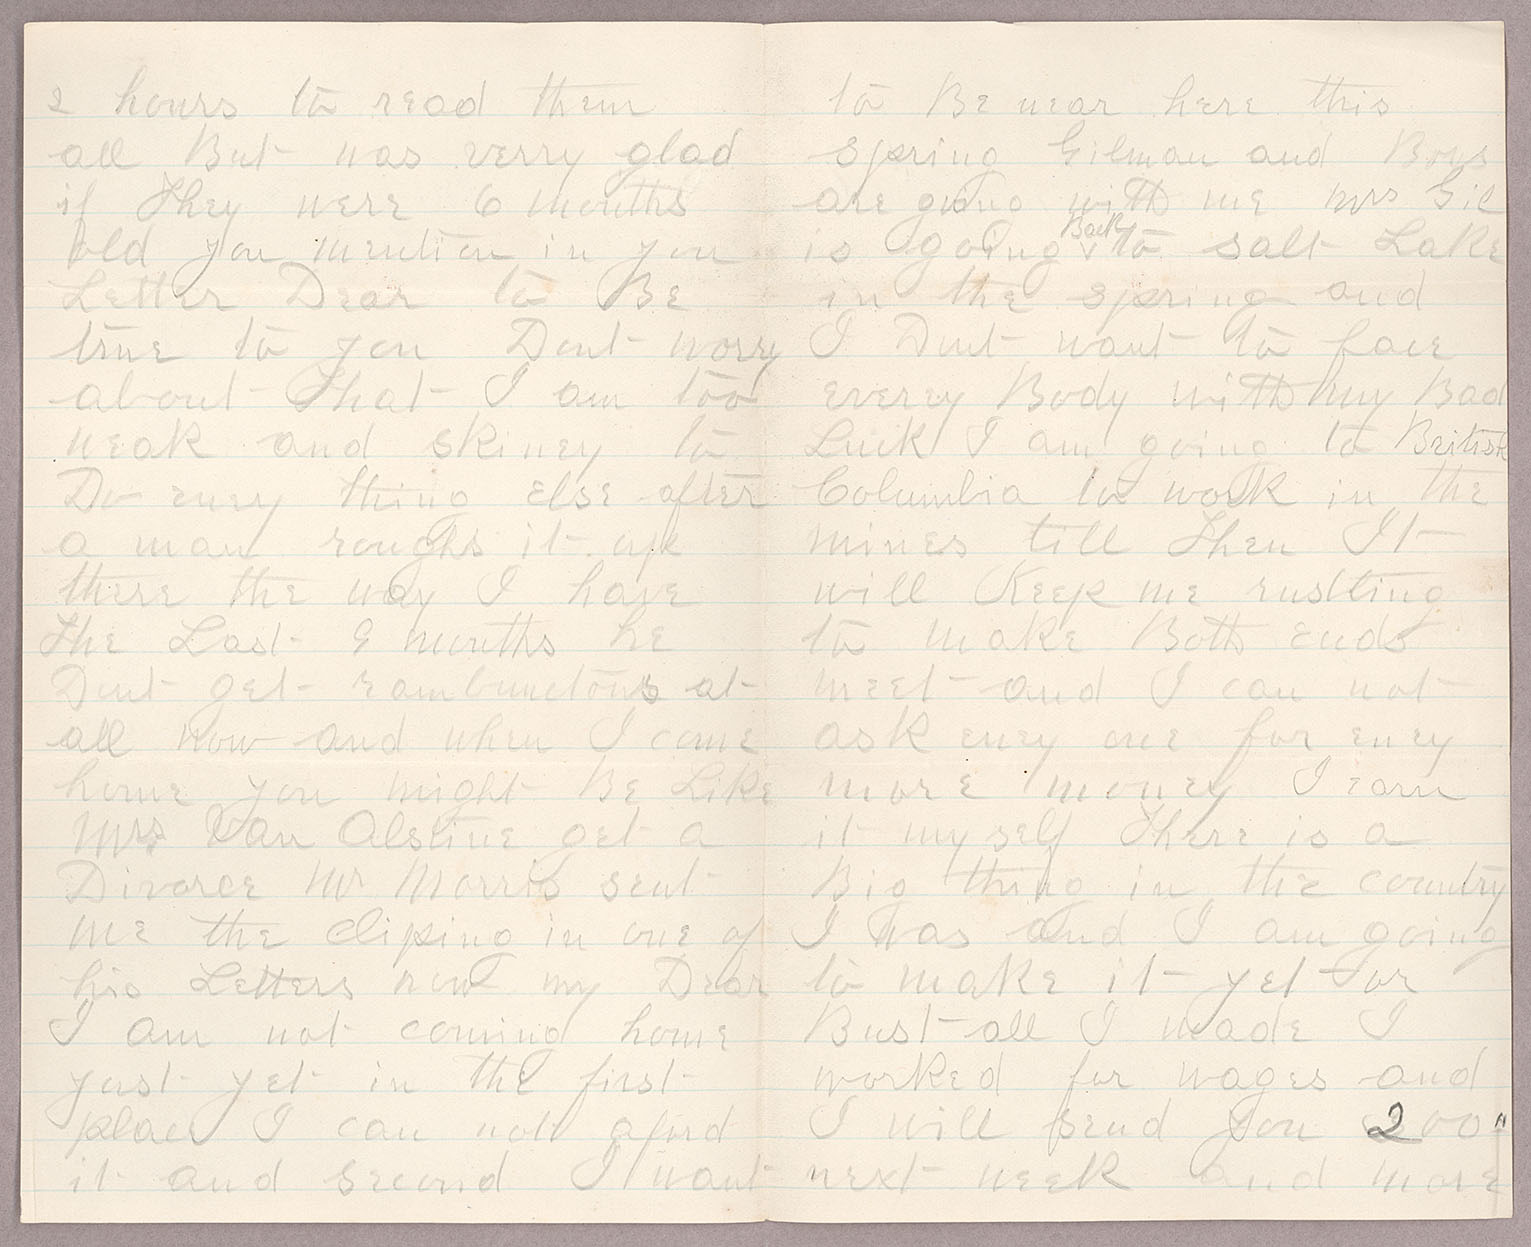 2 hours to read them
all But was verry glad
if They were 6 months
old you mention in you
Letter Dear to Be
true to you Dont worry
about That I am too
weak and skiney to
Do eney thing else after
a man roughs it up
there the way I have
The Last 9 months he
Dont get rambunctous at
all now and when I come
home you might Be Like
Mrs Van Alstine get a
Divorce Mr Morris sent
me the cliping in one of
his Letters now my Dear
I am not coming home
just yet in the first
place I can not aford
it and second I want
to Be near here this
spring Gilman and Boys
are going with me Mrs Gil
is going Back to salt Lake
in the spring and
I Dont want to face
everey Body with my Bad
Luck I am going to British
Columbia to work in the
mines till Then It
will Keep me rustling
to make Both ends
meet and I can not
ask eney one for eney
more money I earn
it my self There is a
Big thing in the country
I was and I am going
to make it yet or
Bust all I made I
worked for wages and
I will send you 200
next week and more